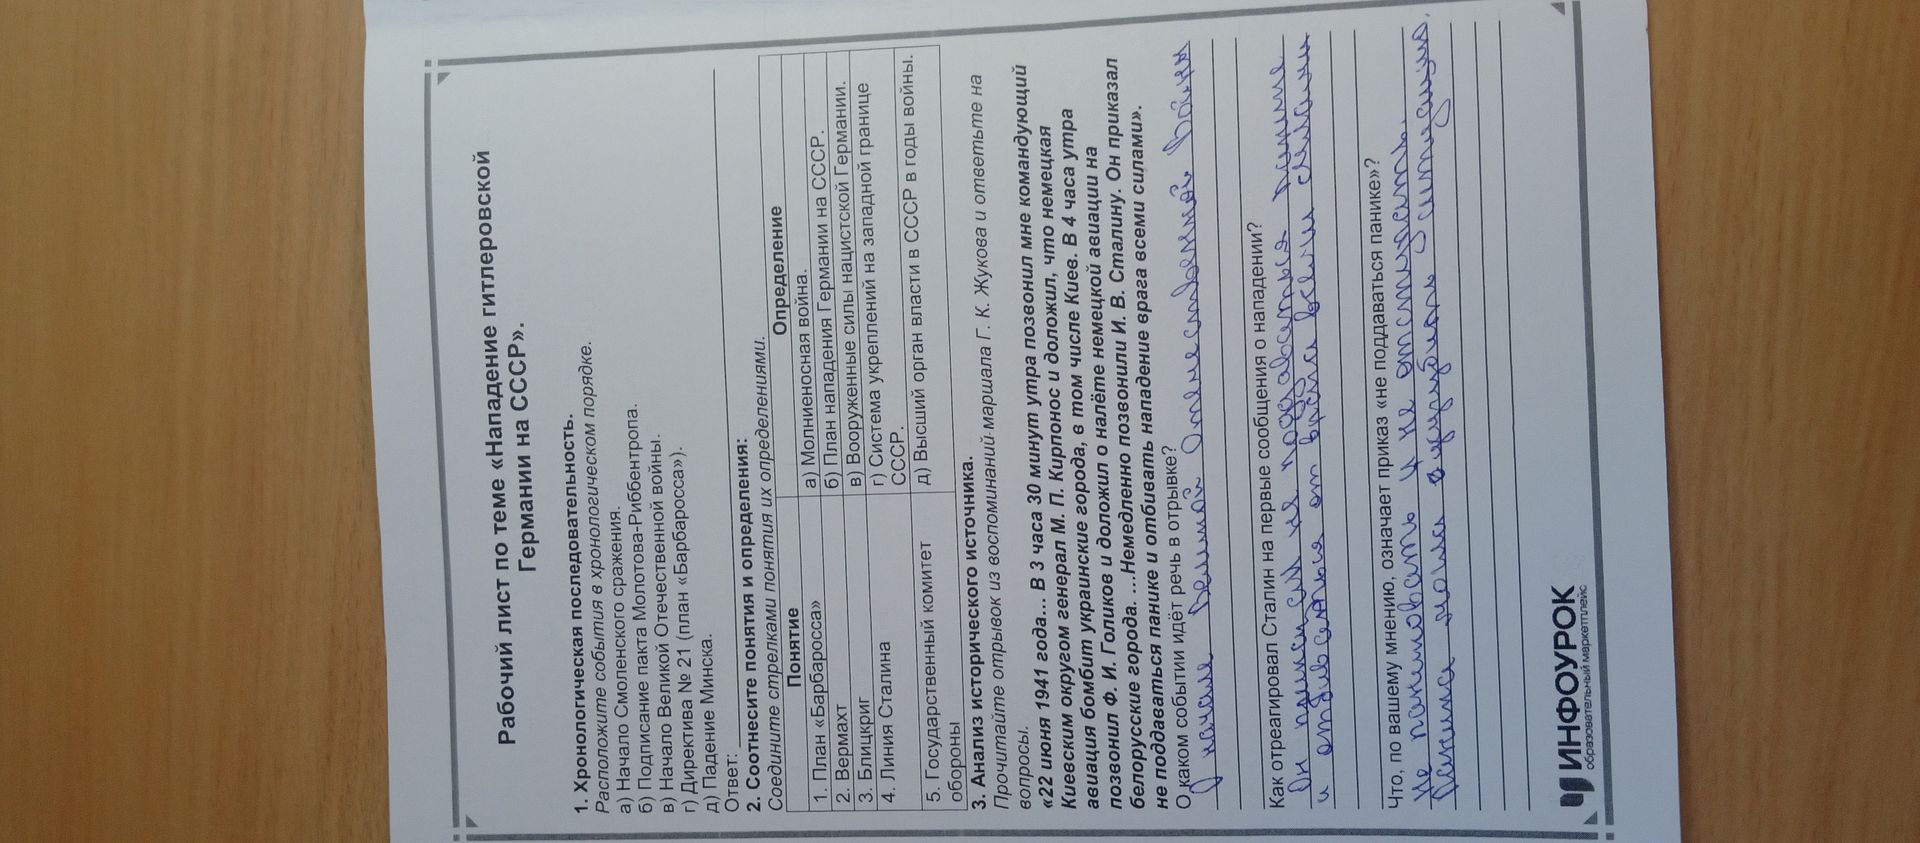 Рабочий лист по теме «Нападение гитлеровской
Германии на СССР».
1. Хронологическая последовательность.
Расположите события в хронологическом порядке.
а) Начало Смоленского сражения.
б) Подписание пакта Молотова-Риббентропа.
в) Начало Великой Отечественной войны.
г) Директива № 21 (план «Барбаросса»).
д) Падение Минска.
Ответ:
2. Соотнесите понятия и определения:
Соедините стрелками понятия и их определениями.
Понятие Определение
1. План «Барбаросса» а) Молниеносная война.
2. Вермахт б) План нападения Германии на СССР.
3. Блицкриг в) Вооруженные силы нацистской Германии.
4. Линия Сталина г) Система укреплений на западной границе
СССР.
5. Государственный комитет д) Высший орган власти в СССР в годы войны.
обороны
3. Анализ исторического источника.
Прочитайте отрывок из воспоминаний маршала Г. К. Жукова и ответьте на
вопросы.
«22 июня 1941 года... В 3 часа 30 минут утра позвонил мне командующий
Киевским округом генерал М. П. Кирпонос и доложил, что немецкая
авиация бомбит украинские города, в том числе Киев. В 4 часа утра
позвонил Ф. И. Голиков и доложил о налёте немецкой авиации на
белорусские города. ...Немедленно позвонили И. В. Сталину. Он приказал
не поддаваться панике и отбивать нападение врага всеми силами».
О каком событии идёт речь в отрывке?
О начале Великой Отечественной Войны
Как отреагировал Сталин на первые сообщения о нападении?
Он приказал не поддаваться панике
и отбиваться от врага всеми силами
Что, по вашему мнению, означает приказ «не поддаваться панике»?
Не паниковать и не отступать.
Паника могла усугубить ситуацию.
ИНФОУРОК
образовательный маркетплейс